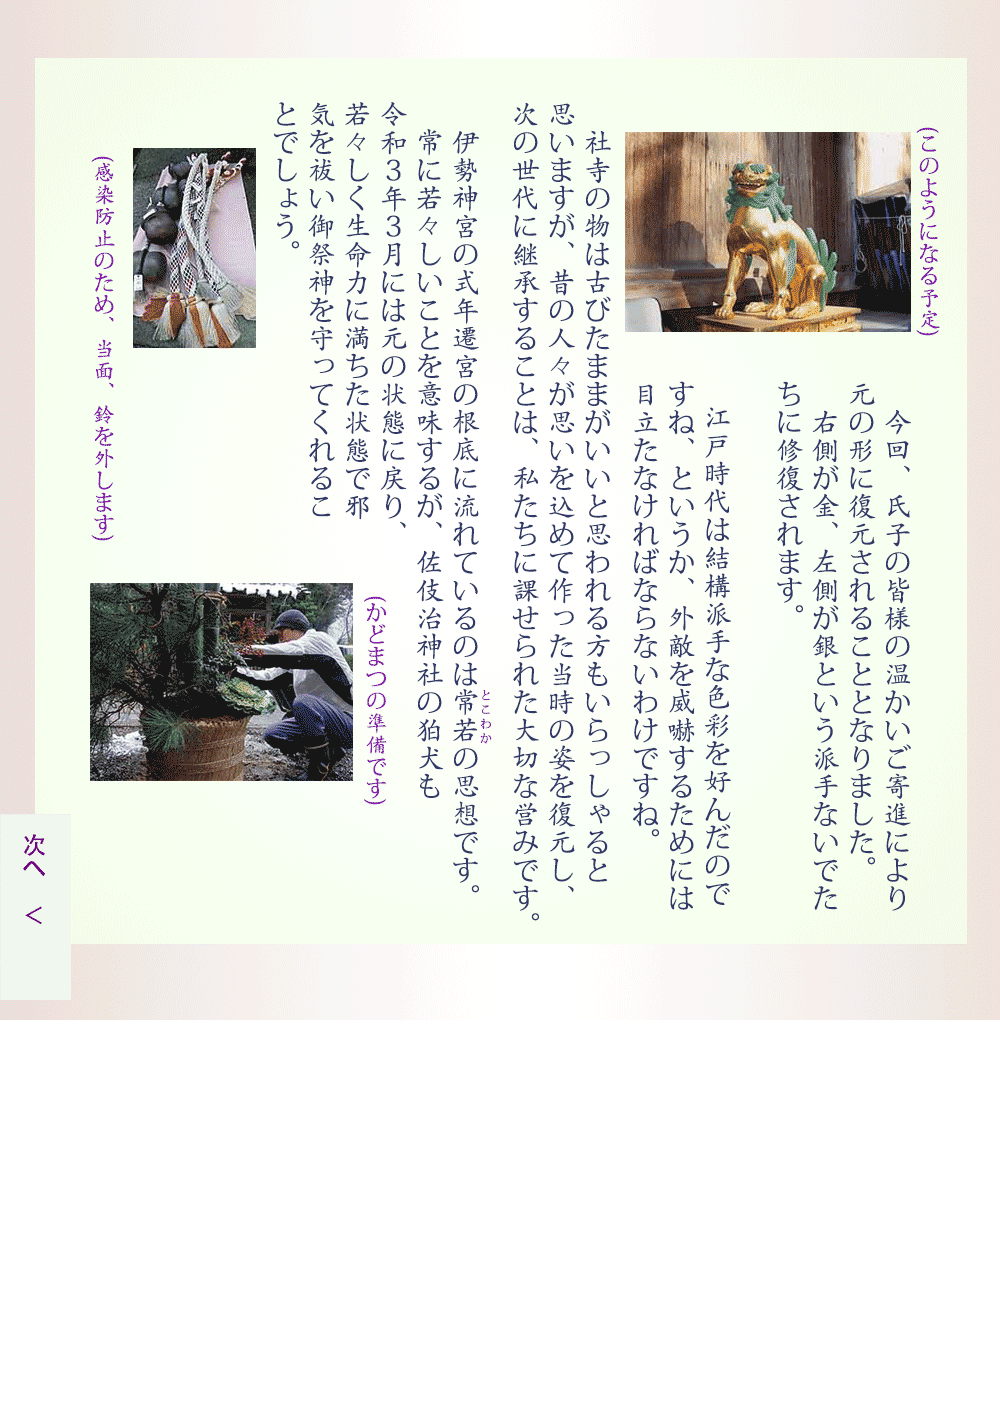 (このようになる予定)
今回、氏子の皆様の温かいご寄進により
元の形に復元されることとなりました。
右側が金、左側が銀という派手ないでた
ちに修復されます。
江戸時代は結構派手な色彩を好んだので
すね、というか、外敵を威嚇するためには
目立たなければならないわけですね。
社寺の物は古びたままがいいと思われる方もいらっしゃると
思いますが、昔の人々が思いを込めて作った当時の姿を復元し、
次の世代に継承することは、私たちに課せられた大切な営みです。
とこわか
伊勢神宮の式年遷宮の根底に流れているのは常若の思想です。
常に若々しいことを意味するが、佐伎治神社の狛犬も
令和3年3月には元の状態に戻り、
若々しく生命力に満ちた状態で邪
気を祓い御祭神を守ってくれるこ
とでしょう。
(かどまつの準備です)
(感染防止のため、当面、鈴を外します)
次へ <